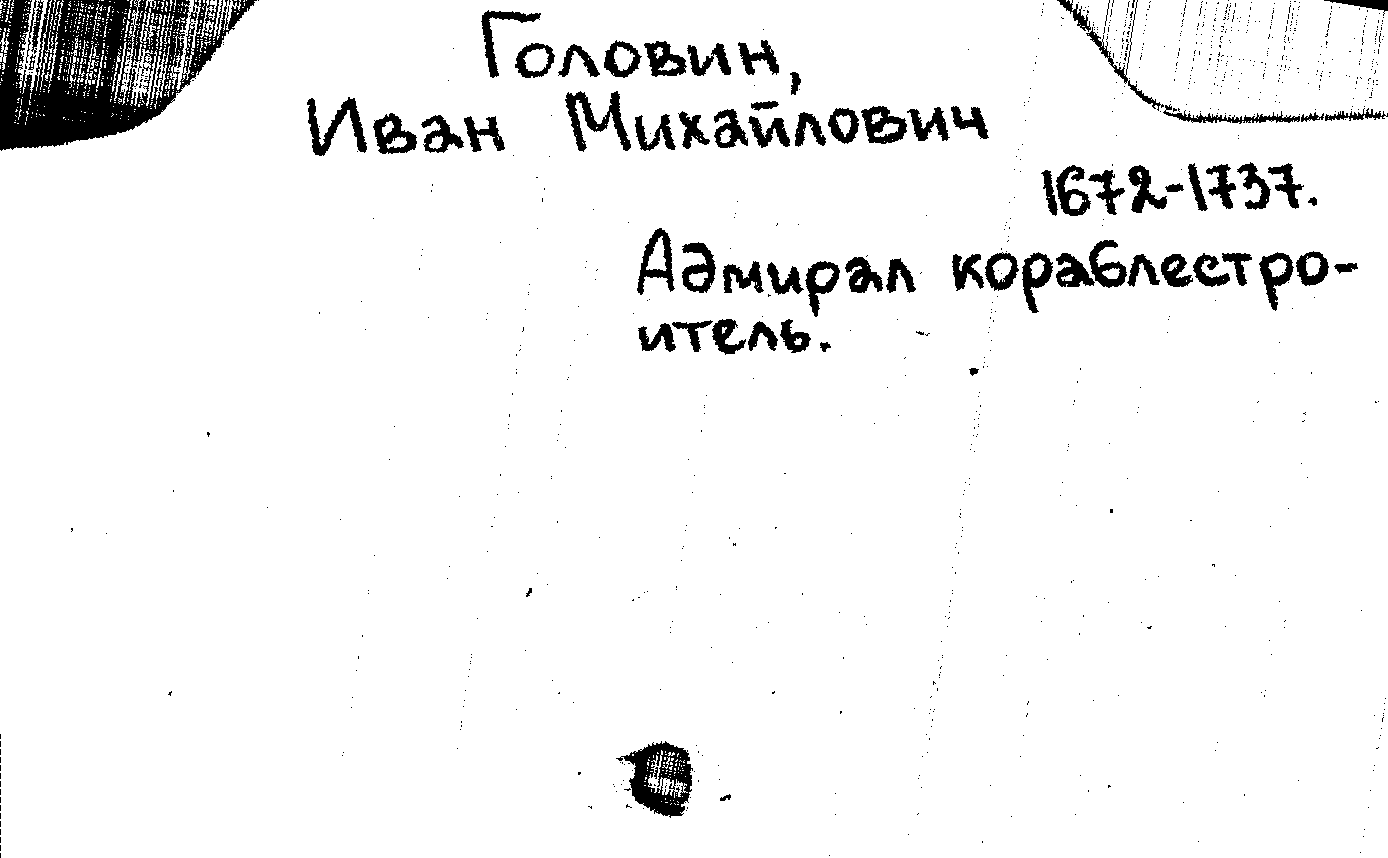 Головин,
Иван Михайлович
1672-1737.
Адмирал кораблестро-
итель.